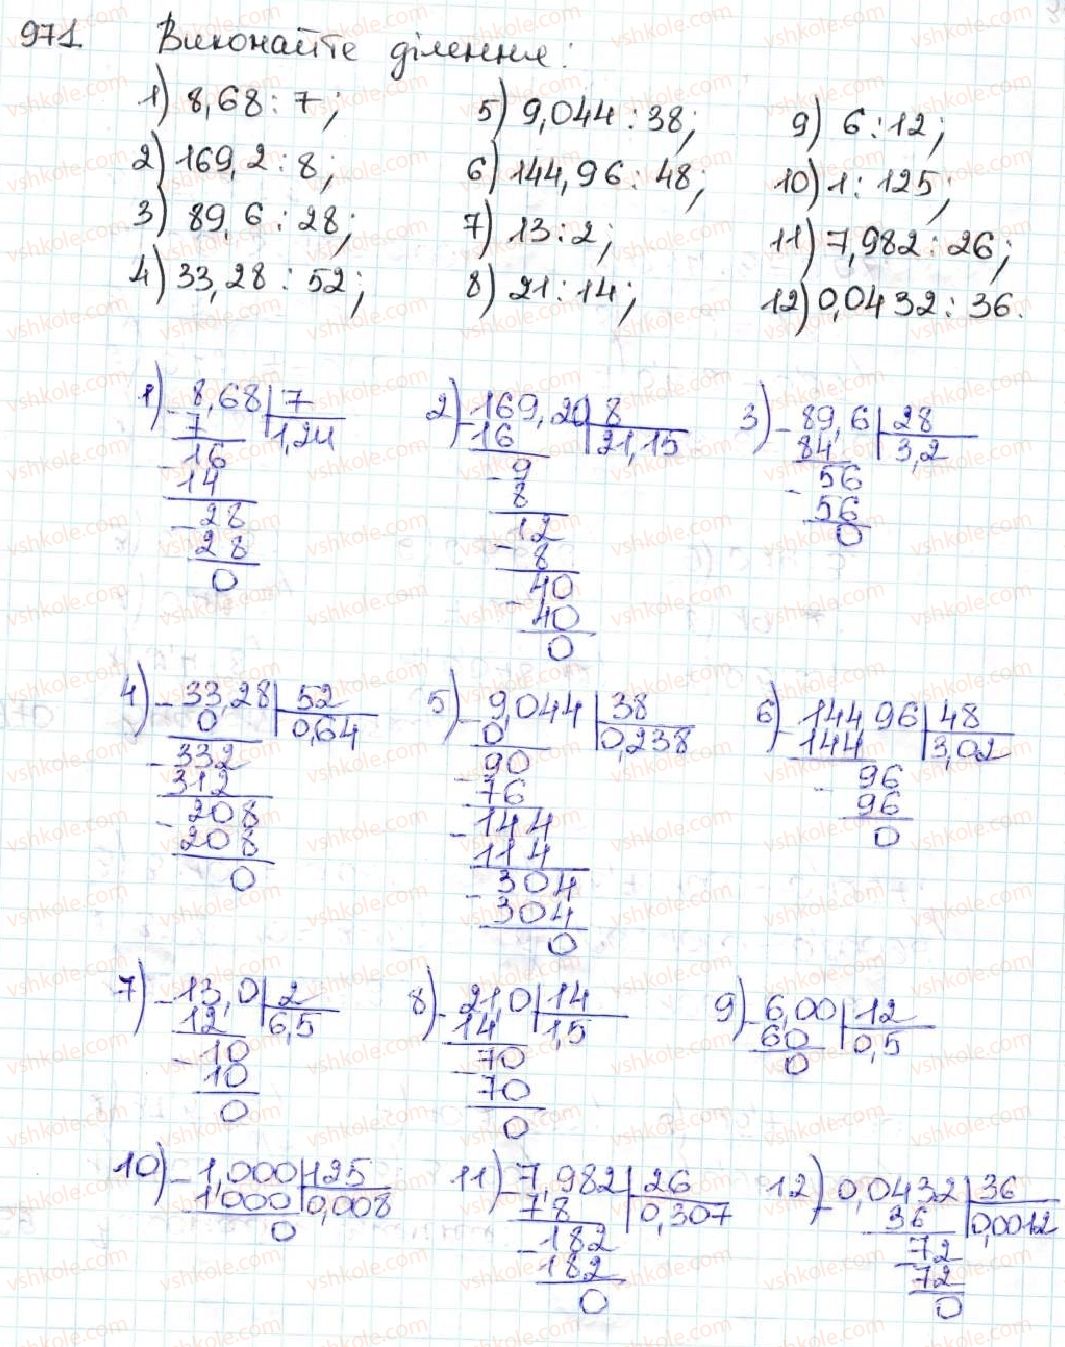 971 Виконайте ділення:
1) 8,68 : 7; 5) 9,044 : 38; 9) 6 : 12;
2) 169,2 : 8; 6) 144,96 : 48; 10) 1 : 125;
3) 89,6 : 28; 7) 13 : 2; 11) 7,982 : 26;
4) 33,28 : 52; 8) 21 : 14; 12) 0,0432 : 36.
1) - 8,68 | 7
7 | 1,24
- 16
14
- 28
28
0
2) - 169,20 | 8
16 | 21,15
- 9
8
12
- 8
- 40
40
0
3) - 89,6 | 28
84 | 3,2
- 56
56
0
4) - 33,28 | 52
0 | 0,64
- 332
312
- 208
208
0
5) - 9,044 | 38
0 | 0,238
- 90
76
- 144
114
- 304
304
0
6) - 144 96 | 48
144 | 3,02
- 96
96
0
7) - 13,0 | 2
12 | 6,5
- 10
10
0
8) - 21,0 | 14
14 | 1,5
- 70
70
0
9) - 6,00 | 12
60 | 0,5
0
10) - 1,000 | 125
1000 | 0,008
0
11) - 7,982 | 26
78 | 0,307
- 182
182
0
12) - 0,0432 | 36
36 | 0,0012
- 72
72
0
vshkole.com